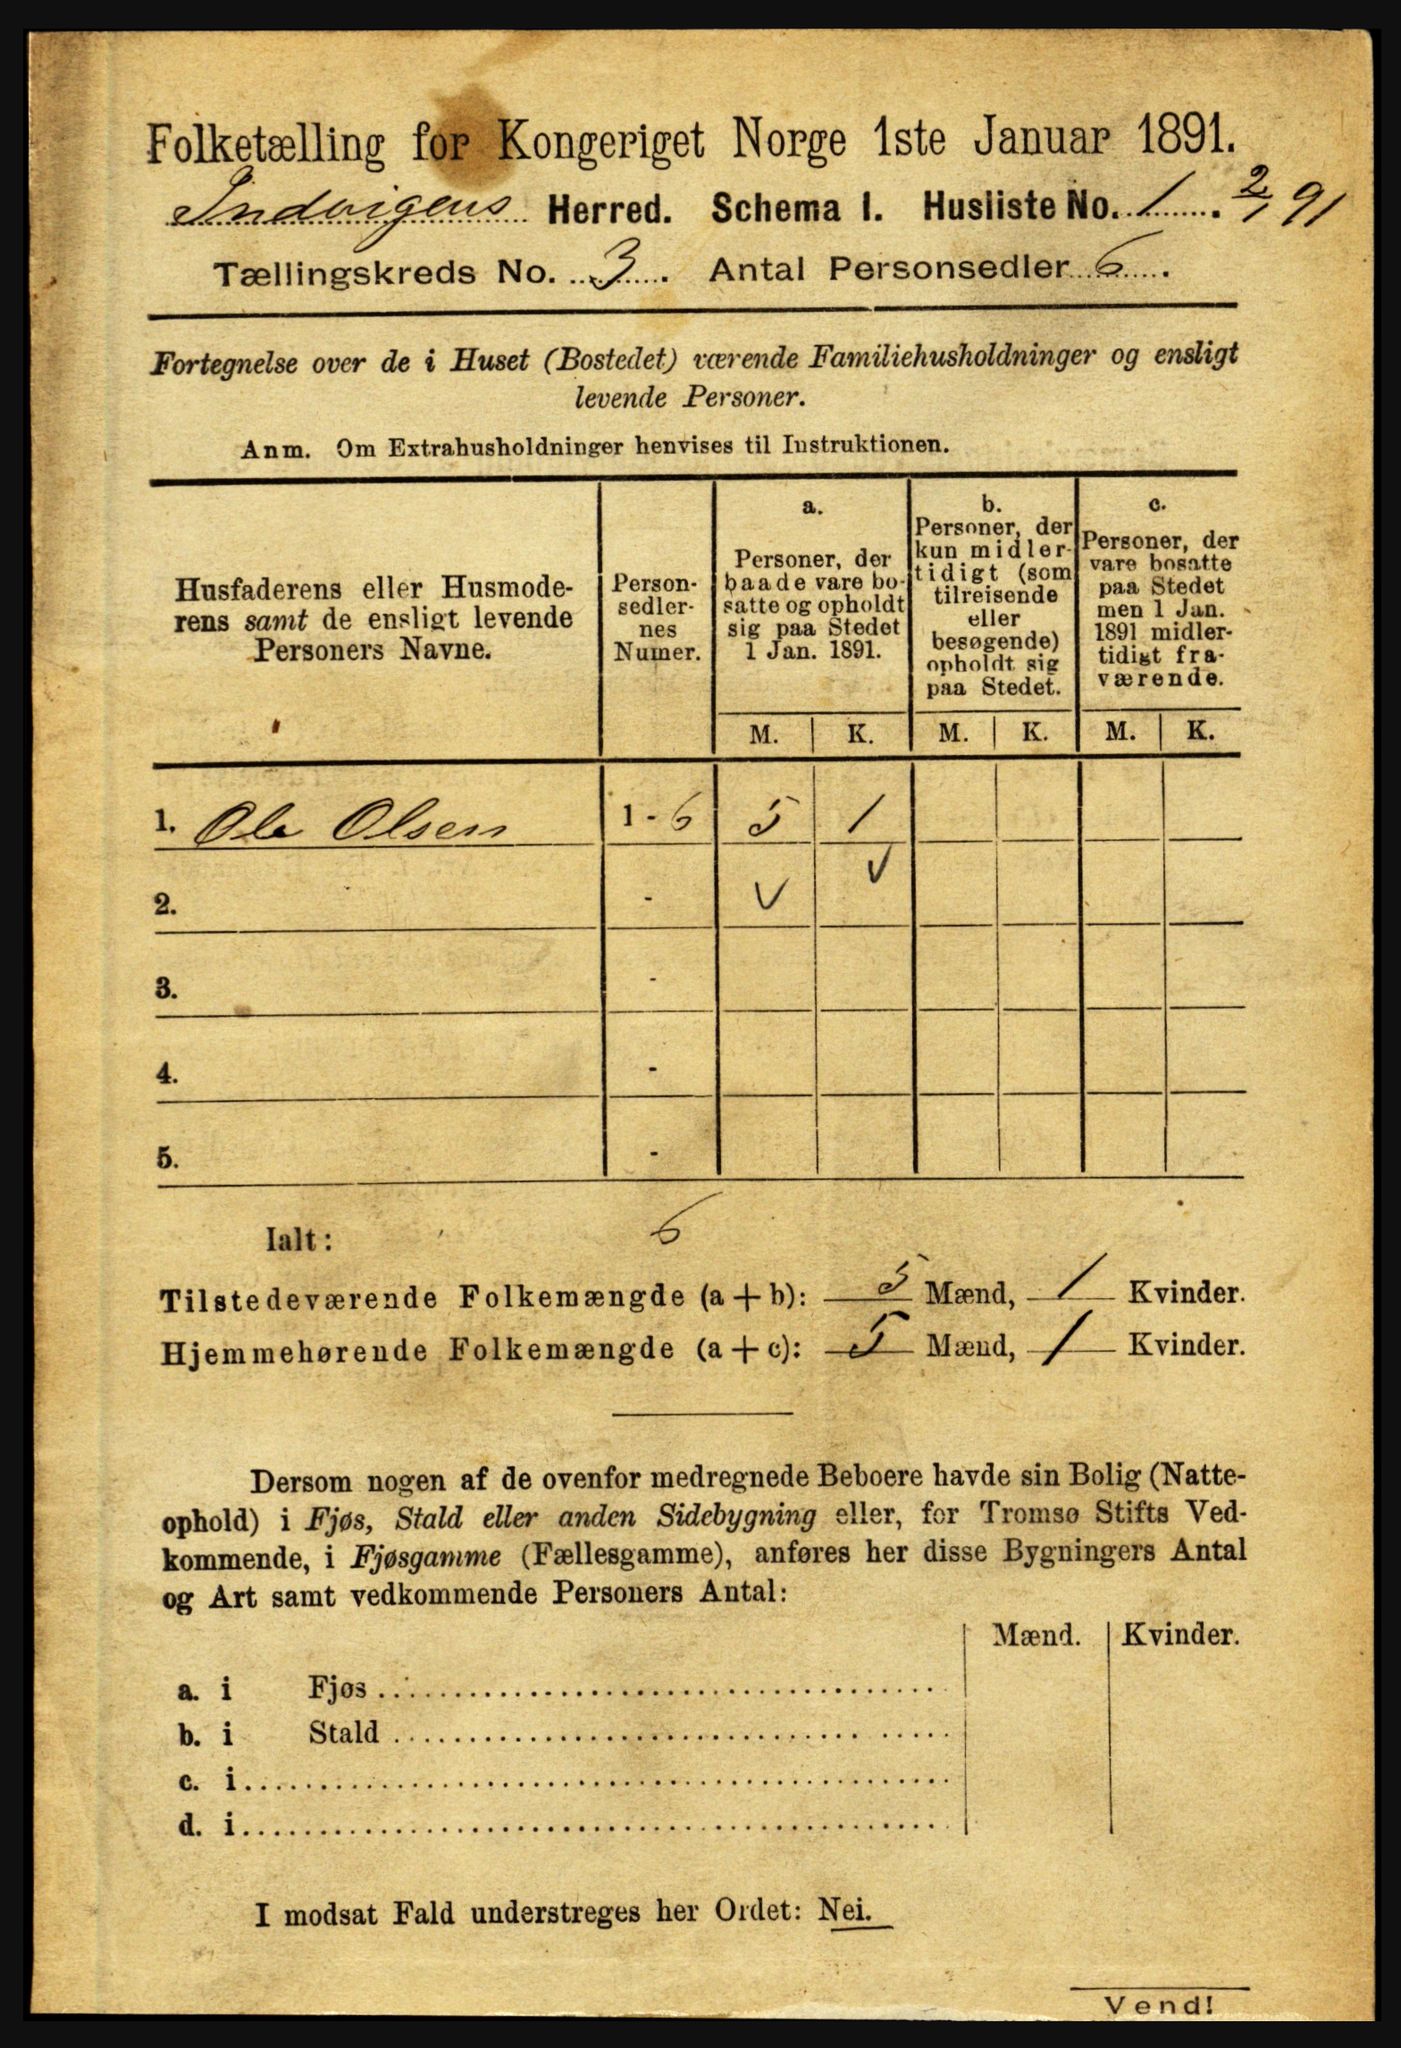 Folketælling for Kongeriget Norge 1ste Januar 1891.
Indvigens Herred. Schema I. Husliste No. 1. 2/1 91
Tællingskreds No. 3. Antal Personsedler 6.
Fortegnelse over de i Huset (Bostedet) værende Familiehusholdninger og ensligt
levende Personer.
Anm. Om Extrahusholdninger henvises til Instruktionen.
Husfaderens eller Husmode-
rens samt de ensligt levende
Personers Navne.
Person-
sedler-
nes
Numer.
a.
Personer, der
baade vare bo-
satte og opholdt
sig paa Stedet
1 Jan. 1891.
b.
Personer, der
kun midler-
tidigt (som
tilreisende
eller
besøgende)
opholdt sig
paa Stedet.
c.
Personer, der
vare bosatte
paa Stedet
men 1 Jan.
1891 midler-
tidigt fra-
værende.
M. K. M. K. M. K.
1. Ole Olsen 1 - 6 5 1
2. - V V
3. -
4. -
5. -
Ialt: 6
Tilstedeværende Folkemængde (a + b): 5 Mænd, 1 Kvinder.
Hjemmehørende Folkemængde (a + c): 5 Mænd, 1 Kvinder.
Dersom nogen af de ovenfor medregnede Beboere havde sin Bolig (Natte-
ophold) i Fjøs, Stald eller anden Sidebygning eller, for Tromsø Stifts Ved-
kommende, i Fjøsgamme (Fællesgamme), anføres her disse Bygningers Antal
og Art samt vedkommende Personers Antal:
Mænd. Kvinder.
a. i Fjøs
b. i Stald
c. i
d. i
I modsat Fald understreges her Ordet: Nei.
Vend!